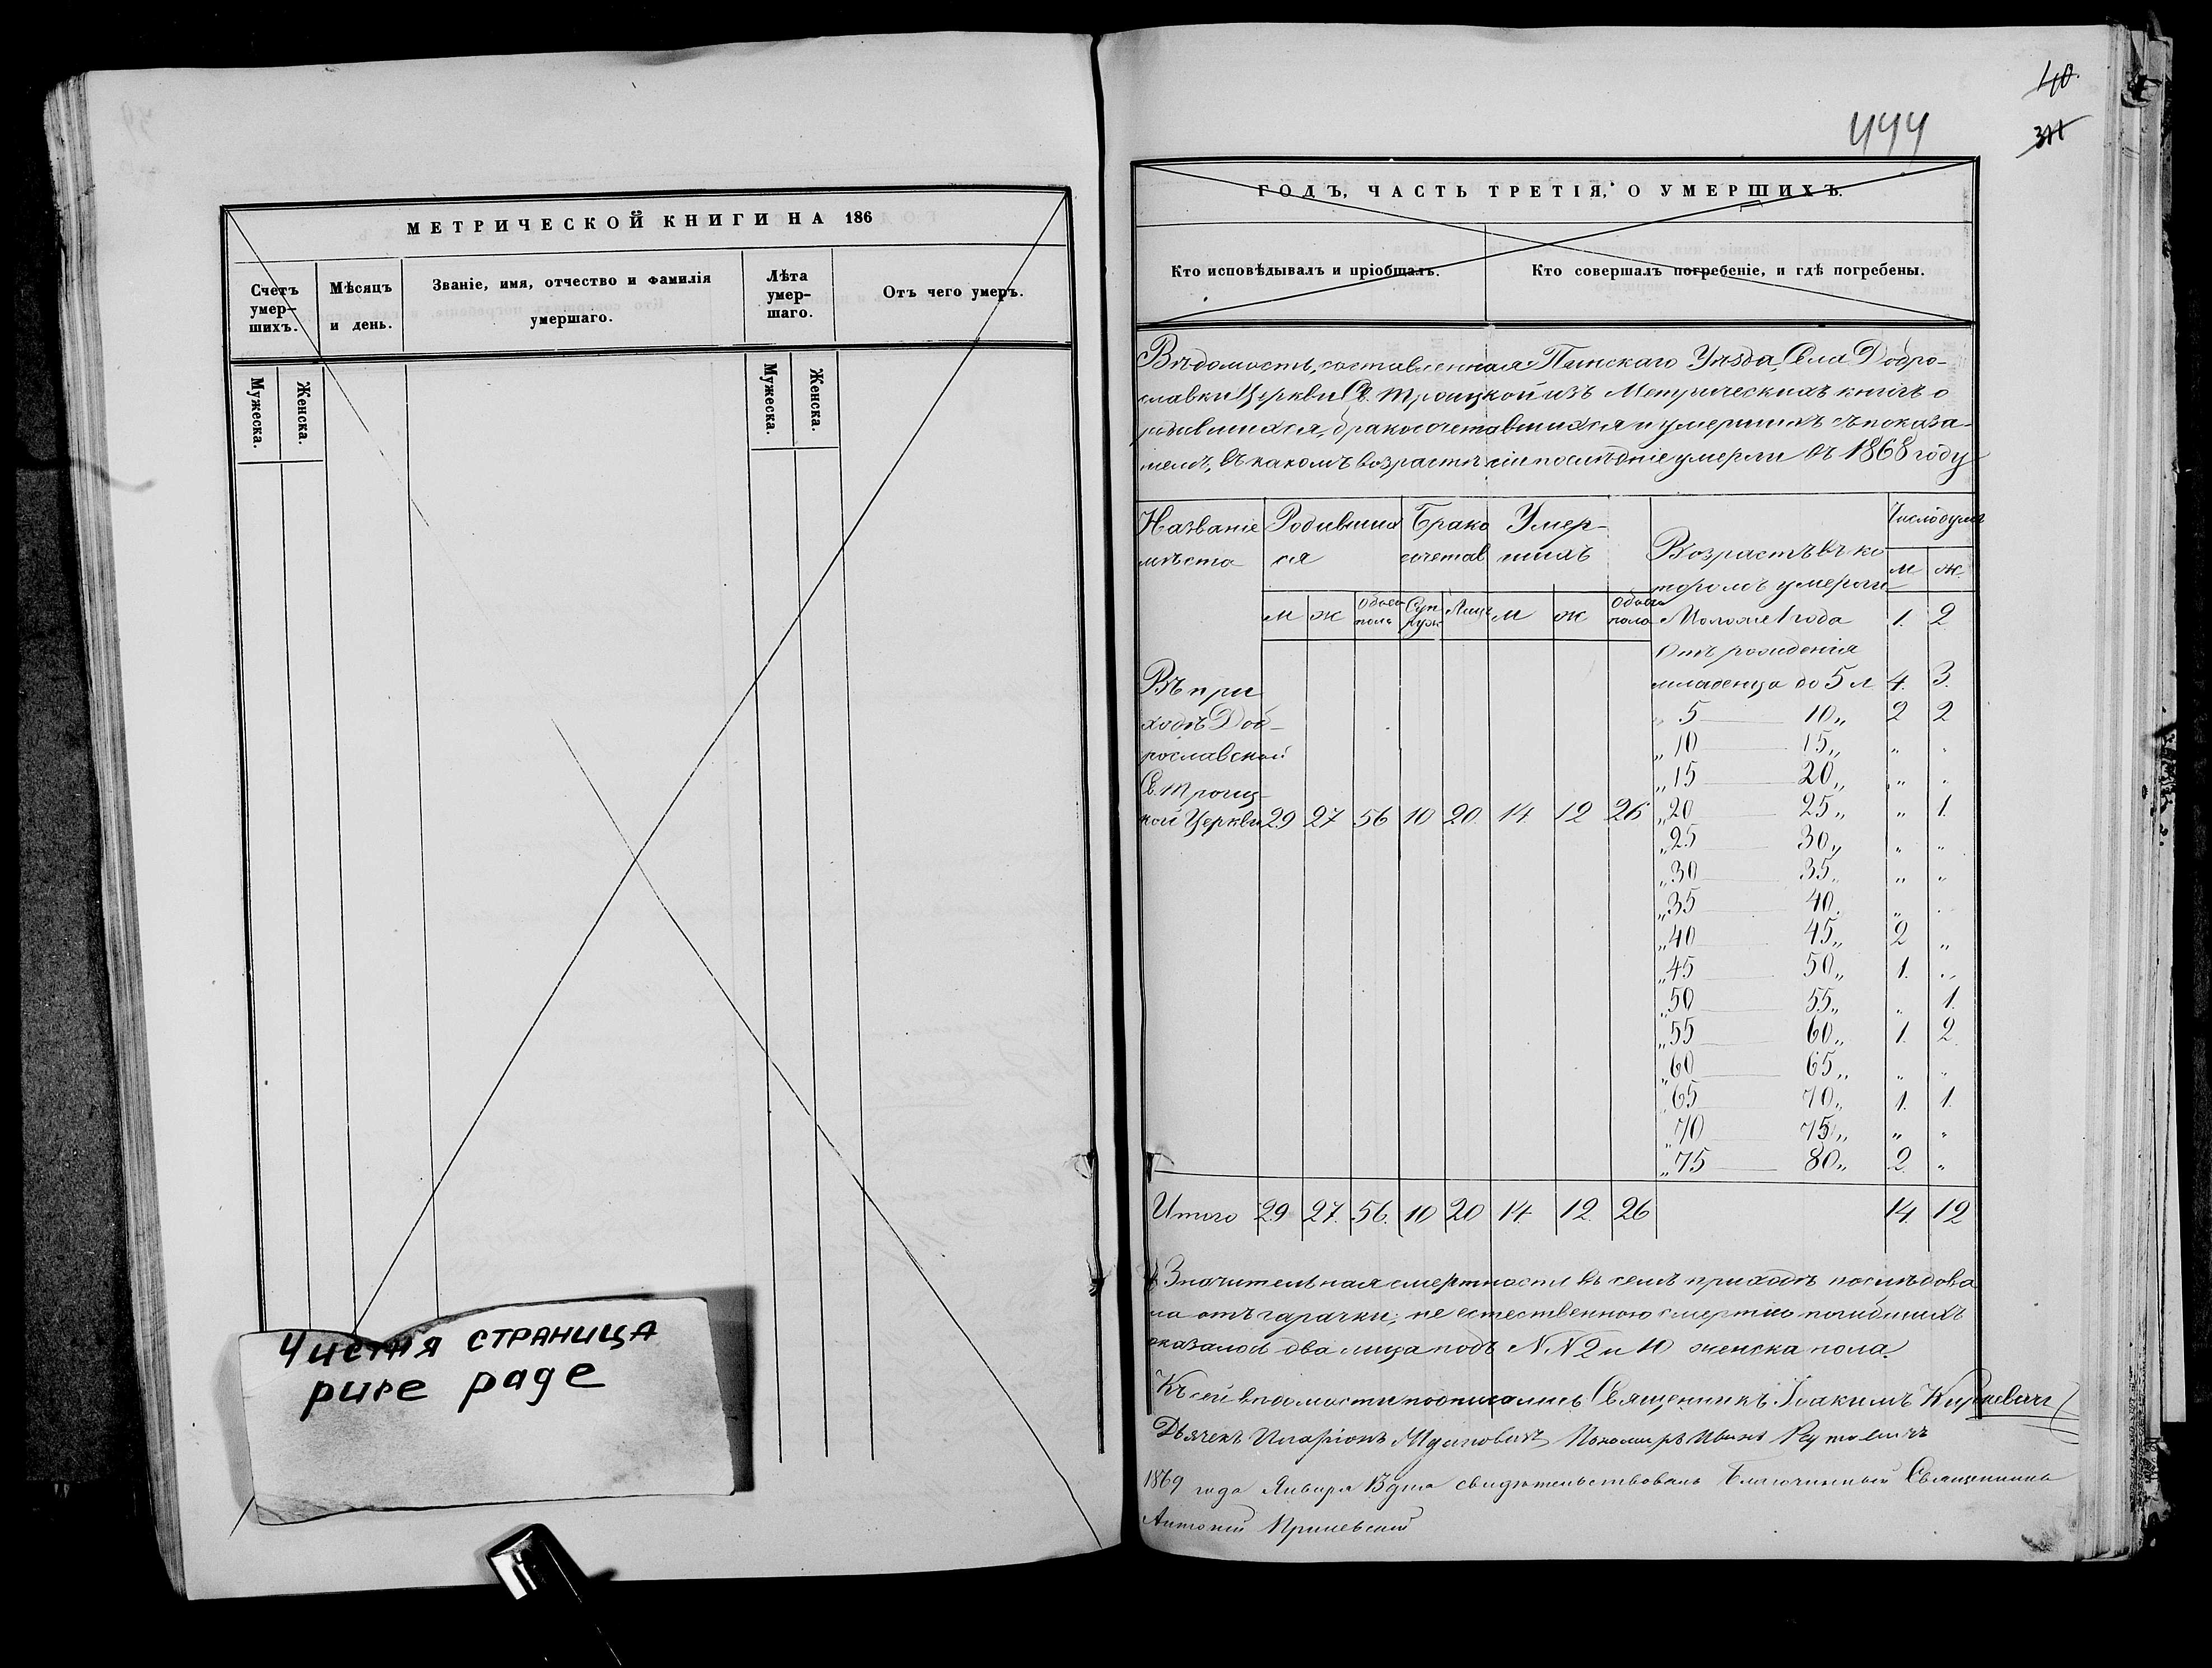 МЕТРИЧЕСКОЙ КНИГИ НА 186
Счетъ умер-шихъ.
Мѣсяцъ и день.
Званіе, имя, отчество и фамилія умершаго.
Лѣта умер-шаго.
Отъ чего умеръ.
Мужеска.
Женска.
Мужеска.
Женска.
Чистая страница
pure page
40.
444
ГОДЪ, ЧАСТЬ ТРЕТІЯ, О УМЕРШИХЪ.
Кто исповѣдывалъ и пріобщалъ.
Кто совершалъ погребеніе, и гдѣ погребены.
Вѣдомость, составленная Пинскаго Уѣзда, Села Добро-
славки Церкви Св. Троицкой изъ Метрическихъ книгъ о
родившихся, бракосочетавшихся и умершихъ съ показа-
ніемъ, въ какомъ возрастѣ сіи послѣдніе умерли въ 1868 году
Названіе Родивши Брако Умер- Число
мѣста ся сочетав шихъ Возрастъ въ ко м ж.
торомъ умерли
м ж Обоего пола Суп руж Лицъ м ж Обоего пола Моложе 1 года 1. 2
Отъ рожденія
Въ при младенца до 5 л 4. 3.
ходѣ Доб- 5 10 „ 2 2
рославской „ 10 15 „ „ „
Св. Троиц- „ 15 20 „ „ „
кой Церкви 29 27 56 10 20. 14 12 26 „ 20 25 „ „ 1.
„ 25 30 „ „ „
„ 30 35 „ „ „
„ 35 40. „ .
„ 40 45 „ 2 „
„ 45 50 „ 1. „
„ 50 55 „ „ 1.
„ 55 60 „ 1. 2
„ 60 65 „ „ „
„ 65 70 „ 1. 1.
„ 70 75 „ „ „
„ 75 80 „ 2 „
Итого 29 27. 56. 10 20 14 12. 26 14. 12
Значительная смертность въ семъ приходѣ послѣдова
ла отъ гарачки; не естественною смертію погибшихъ
оказалось два лица подъ N.N 2 и 10 женска пола.
Къ сей вѣдомости подписались Священникъ Іоакимъ
Дьячекъ Иларіонъ Пономарь Иванъ
1869 года Января дня свидѣтельствовалъ Благочинный Священникъ
Антоній